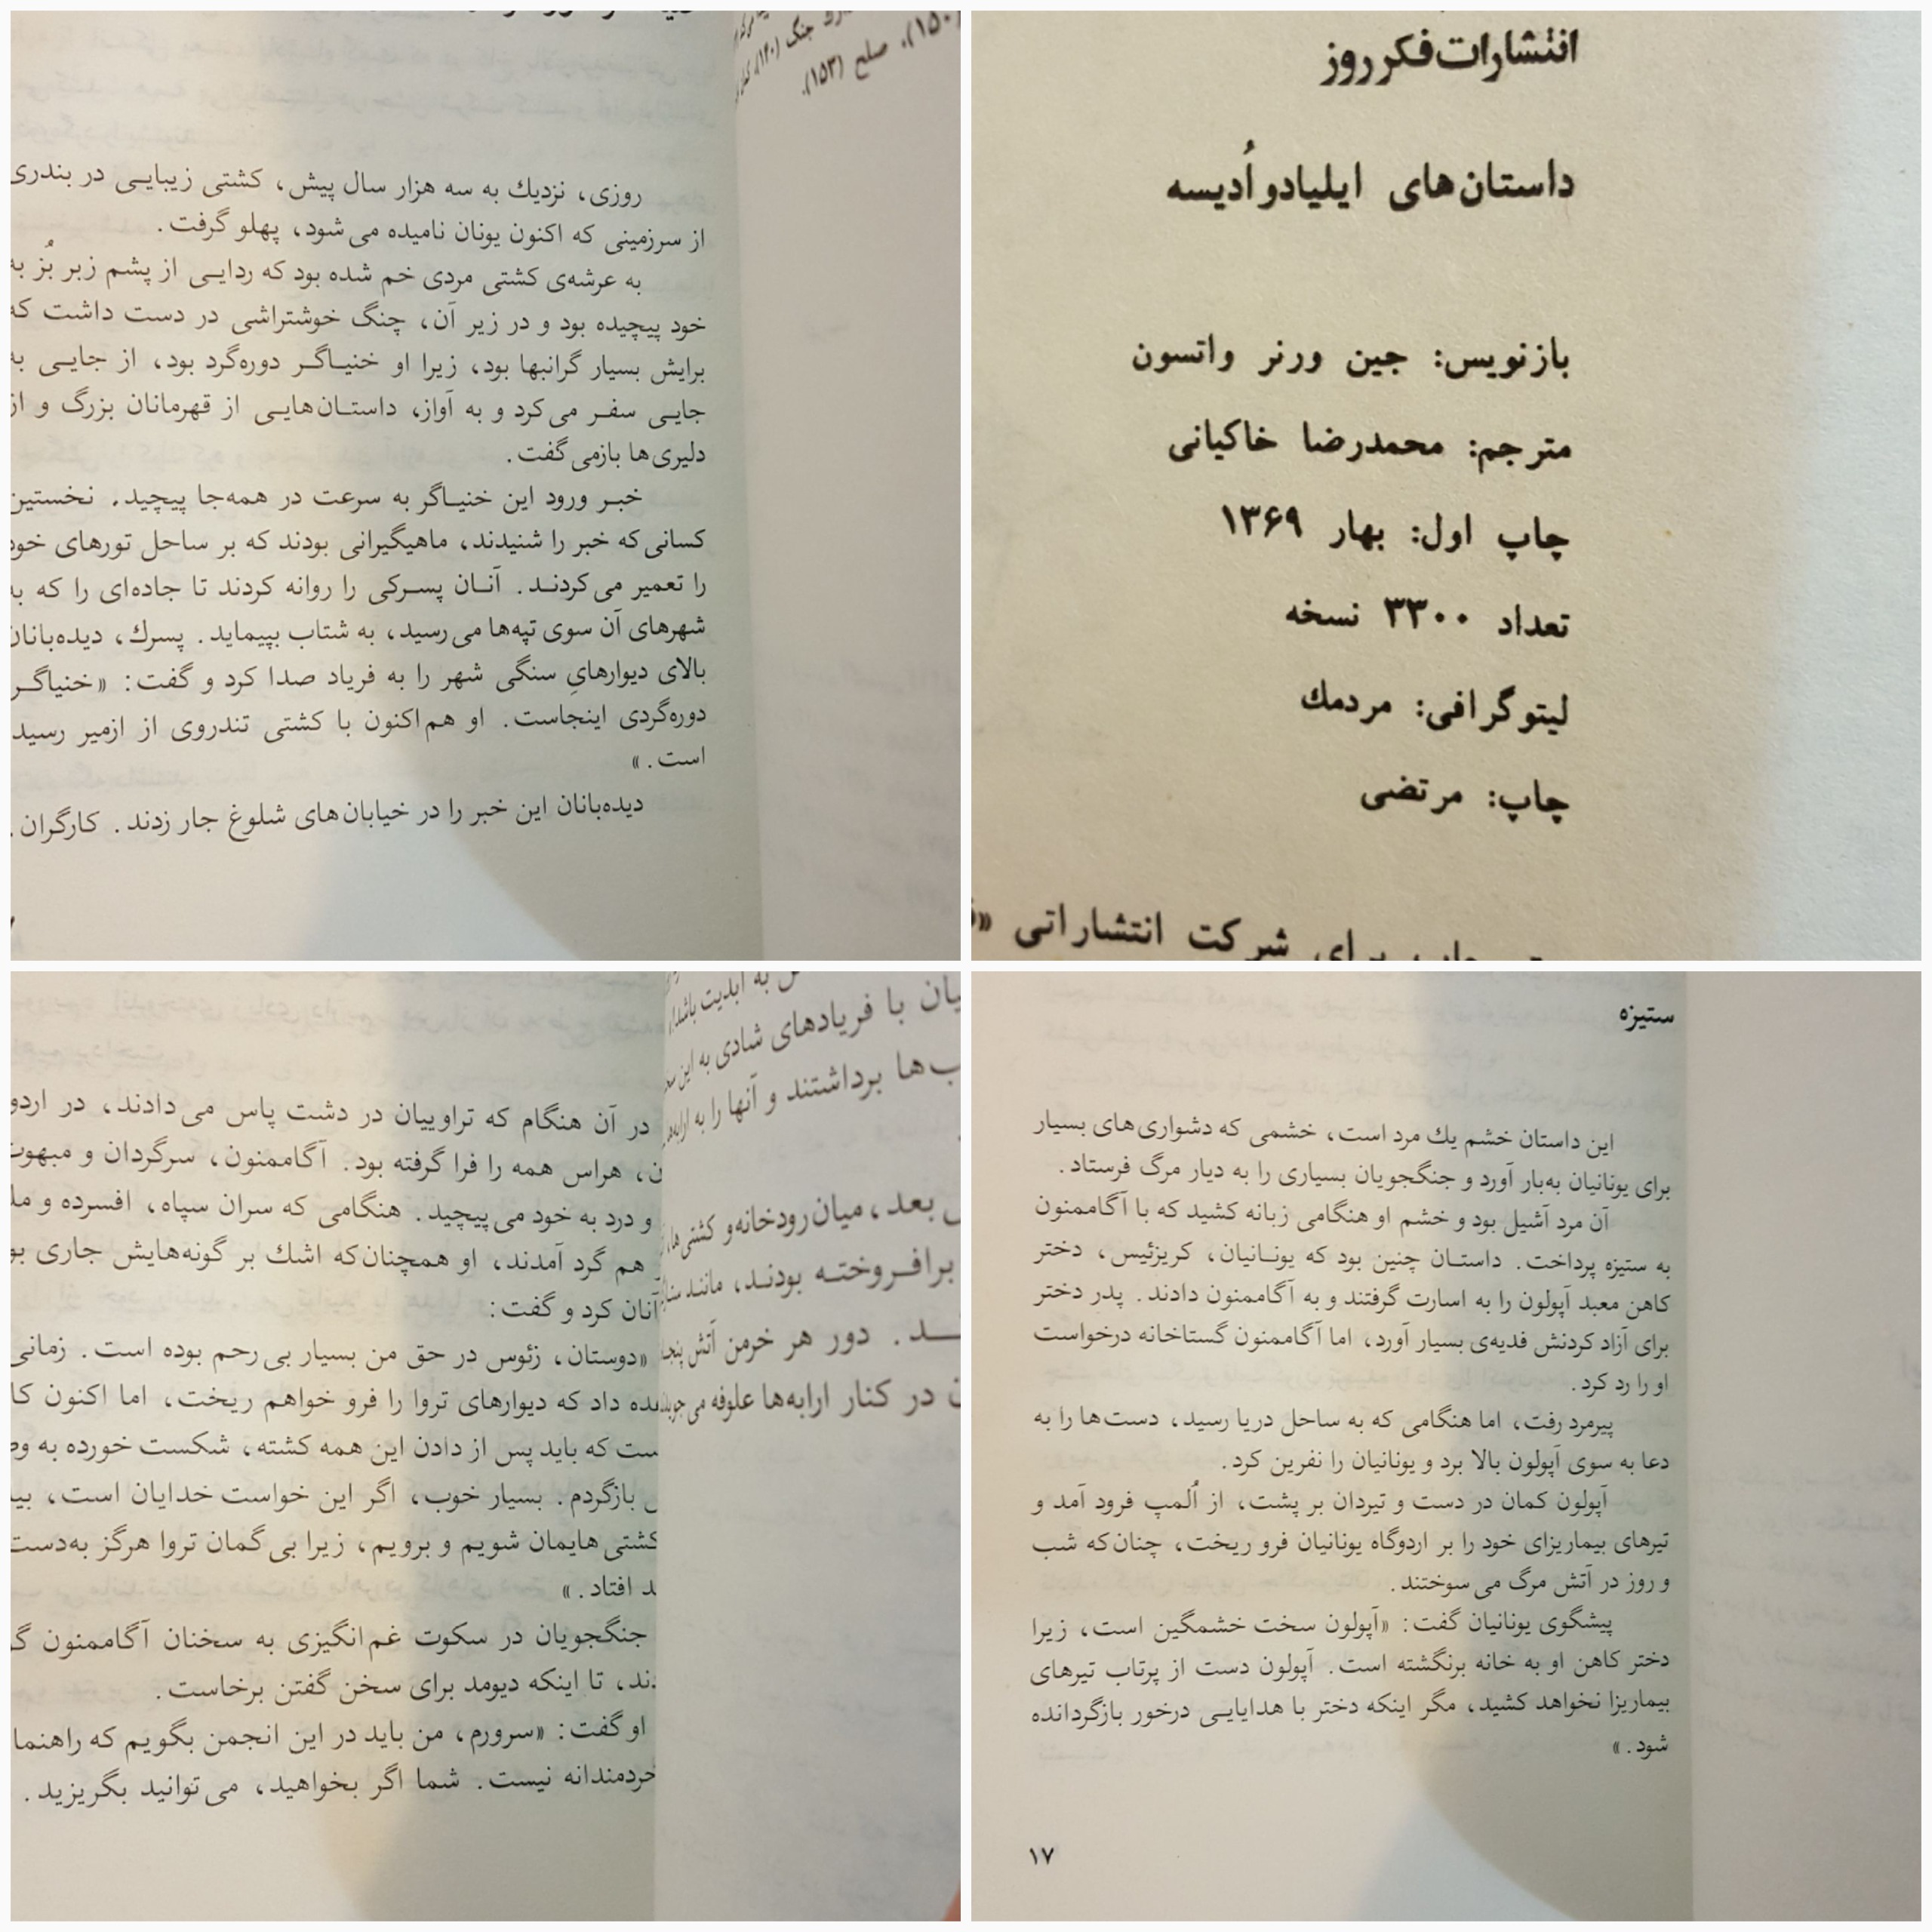 جنگ (۱۴۰)،
(۱۵۰). صلح (۱۵۳).
روزی، نزدیك به سه هزار سال پیش، کشتی زیبایی در بندری
از سرزمینی که اکنون یونان نامیده می‌شود، پهلو گرفت.
به عرشه‌ی کشتی مردی خم شده بود که ردایی از پشم زبر بُز به
خود پیچیده بود و در زیر آن، چنگ خوشتراشی در دست داشت که
برایش بسیار گرانبها بود، زیرا او خنیاگر دوره‌گرد بود، از جایی به
جایی سفر می‌کرد و به آواز، داستان‌هایی از قهرمانان بزرگ و از
دلیری‌ها بازمی‌گفت.
خبر ورود این خنیاگر به سرعت در همه‌جا پیچید. نخستین
کسانی که خبر را شنیدند، ماهیگیرانی بودند که بر ساحل تورهای خود
را تعمیر می‌کردند. آنان پسرکی را روانه کردند تا جاده‌ای را که به
شهرهای آن سوی تپه‌ها می‌رسید، به شتاب بپیماید. پسرك، دیده‌بانان
بالای دیوارهایِ سنگی شهر را به فریاد صدا کرد و گفت: «خنیاگر
دوره‌گردی اینجاست. او هم‌اکنون با کشتی تندروی از ازمیر رسید
است.»
دیده‌بانان این خبر را در خیابان‌های شلوغ جار زدند. کارگران.
انتشارات فکر روز
داستان‌های ایلیاد و اُدیسه
بازنویس: جین ورنر واتسون
مترجم: محمدرضا خاکیانی
چاپ اول: بهار ۱۳۶۹
تعداد ۳۳۰۰ نسخه
لیتوگرافی: مردمك
چاپ: مرتضی
چاپ برای شرکت انتشاراتی «
به ابدیت باشد
یان با فریادهای شادی به این
ب‌ها برداشتند و آنها را به ارابه‌ها
بعد، میان رودخانه و کشتی‌ها،
برافروخته بودند، مانند
د. دور هر خرمن آتش
در کنار ارابه‌ها علوفه می‌جویدند
در آن هنگام که تراوییان در دشت پاس می‌دادند، در اردو
ن، هراس همه را فرا گرفته بود. آگاممنون، سرگردان و مبهوت
و درد به خود می‌پیچید. هنگامی که سران سپاه، افسرده و ملـ
هم گرد آمدند، او همچنان‌که اشك بر گونه‌هایش جاری بو
آنان کرد و گفت:
«دوستان، زئوس در حق من بسیار بی‌رحم بوده است. زمانی
ـده داد که دیوارهای تروا را فرو خواهم ریخت، اما اکنون کا
ـست که باید پس از دادن این همه کشته، شکست خورده به وط
بازگردم. بسیار خوب، اگر این خواست خدایان است، بیـ
کشتی‌هایمان شویم و برویم، زیرا بی‌گمان تروا هرگز به‌دست
ـد افتاد.»
جنگجویان در سکوت غم‌انگیزی به سخنان آگاممنون گو
دند، تا اینکه دیومد برای سخن گفتن برخاست.
او گفت: «سرورم، من باید در این انجمن بگویم که راهنما
خردمندانه نیست. شما اگر بخواهید، می‌توانید بگریزید.
ستیزه
این داستان خشم یك مرد است، خشمی که دشواری‌های بسیار
برای یونانیان به‌بار آورد و جنگجویان بسیاری را به دیار مرگ فرستاد.
آن مرد آشیل بود و خشم او هنگامی زبانه کشید که با آگاممنون
به ستیزه پرداخت. داستان چنین بود که یونانیان، کریزئیس، دختر
کاهن معبد آپولون را به اسارت گرفتند و به آگاممنون دادند. پدر دختر
برای آزاد کردنش فدیه‌ی بسیار آورد، اما آگاممنون گستاخانه درخواست
او را رد کرد.
پیرمرد رفت، اما هنگامی که به ساحل دریا رسید، دست‌ها را به
دعا به سوی آپولون بالا برد و یونانیان را نفرین کرد.
آپولون کمان در دست و تیردان بر پشت، از اُلمپ فرود آمد و
تیرهای بیماریزای خود را بر اردوگاه یونانیان فرو ریخت، چنان‌که شب
و روز در آتش مرگ می‌سوختند.
پیشگوی یونانیان گفت: «آپولون سخت خشمگین است، زیرا
دختر کاهن او به خانه برنگشته است. آپولون دست از پرتاب تیرهای
بیماریزا نخواهد کشید، مگر اینکه دختر با هدایایی درخور بازگردانده
شود.»
۱۷